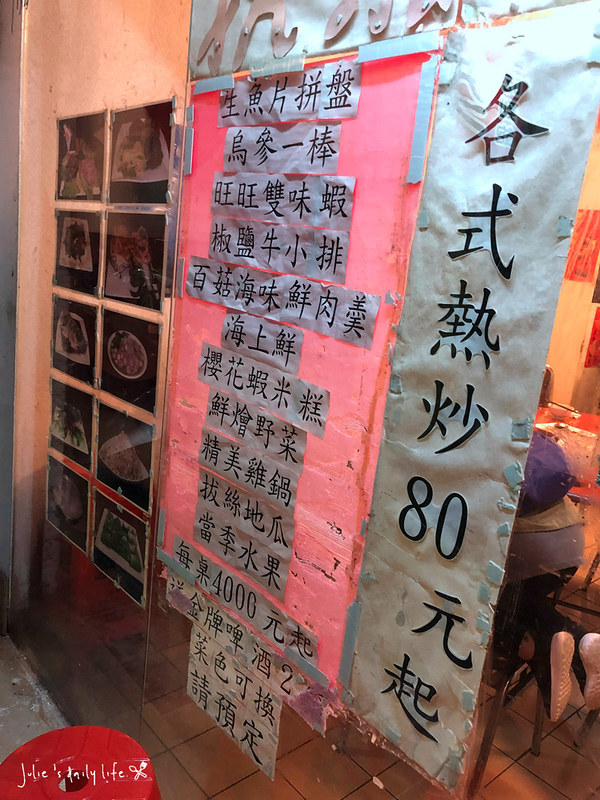 生魚片拼盤
烏參一棒
旺旺雙味蝦
椒鹽牛小排
百菇海味鮮肉羹
海上鮮
櫻花蝦米糕
鮮燴野菜
精美雞鍋
拔絲地瓜
當季水果
每桌4000元起
送金牌啤酒2
菜色可換
請預定
各式熱炒80元起
Julie's daily life